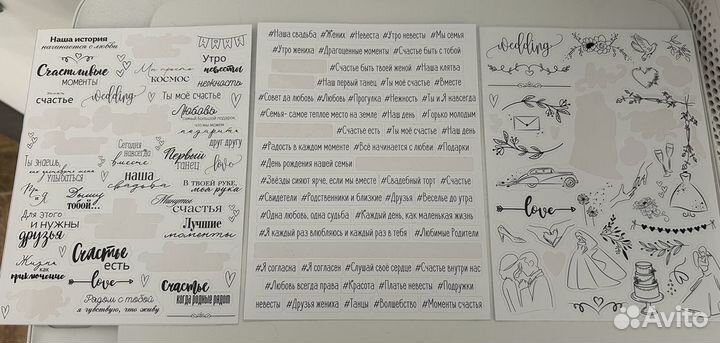 Наша история
начинается с любви
Счастливые
моменты
Мы просто
космос
Утро
невесты
нежность
счастье
wedding
Ты моё счастье
Любовь
самый большой подарок,
что мы можем
подарить
друг другу
Сегодня
навсегда
вместе
Первый
танец
love
Ты знаешь,
улыбаться
наша
свадьба
В твоей руке,
моя рука
Дышу
тобой...
Минутка
счастья
Для этого
и нужны
друзья
Лучшие
моменты
Жизнь
как
приключение
Счастье
есть
love
Счастье
когда родные рядом
Рядом с тобой
я чувствую, что живу
#Наша свадьба #Жених #Невеста #Утро невесты #Мы семья
#Утро жениха #Драгоценные моменты #Счастье быть с тобой
#Счастье быть твоей женой #Наша клятва
#Наш первый танец #Ты моё счастье #Вместе
#Совет да любовь #Любовь #Прогулка #Нежность #Ты и Я навсегда
#Семья- самое теплое место на земле #Наш день #Горько молодым
#Счастье есть #Ты моё счастье #Наш день
#Радость в каждом моменте #Всё начинается с любви #Подарки
#День рождения нашей семьи
#Звёзды сияют ярче, если мы вместе #Свадебный торт #Счастье
#Свидетели #Родственники и близкие #Друзья #Веселье до утра
#Одна любовь, одна судьба #Каждый день, как маленькая жизнь
#Я каждый раз влюбляюсь и каждый раз в тебя #Любимые Родители
#Я согласна #Я согласен #Слушай своё сердце #Счастье внутри нас
#Любовь всегда права #Красота #Платье невесты #Подружки
невесты #Друзья жениха #Танцы #Волшебство #Моменты счастья
wedding
love
Avito